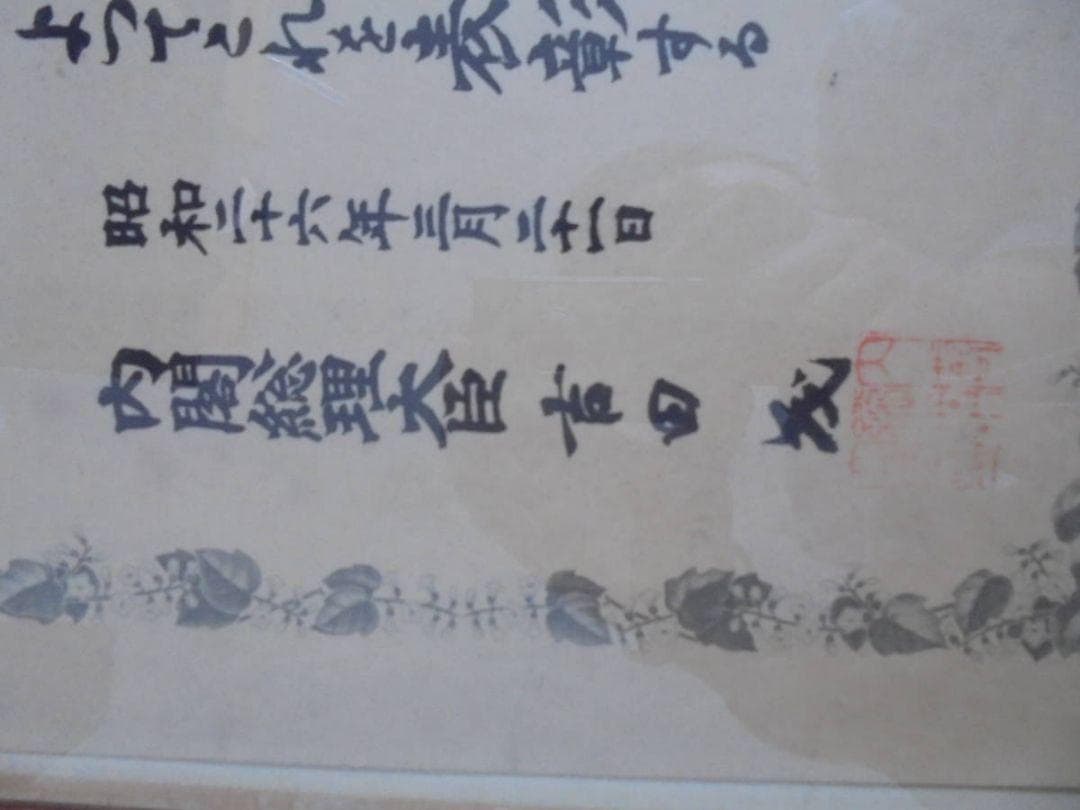 よつてこれを表彰する
昭和二十六年三月二十一日
内閣総理大臣 吉田 茂